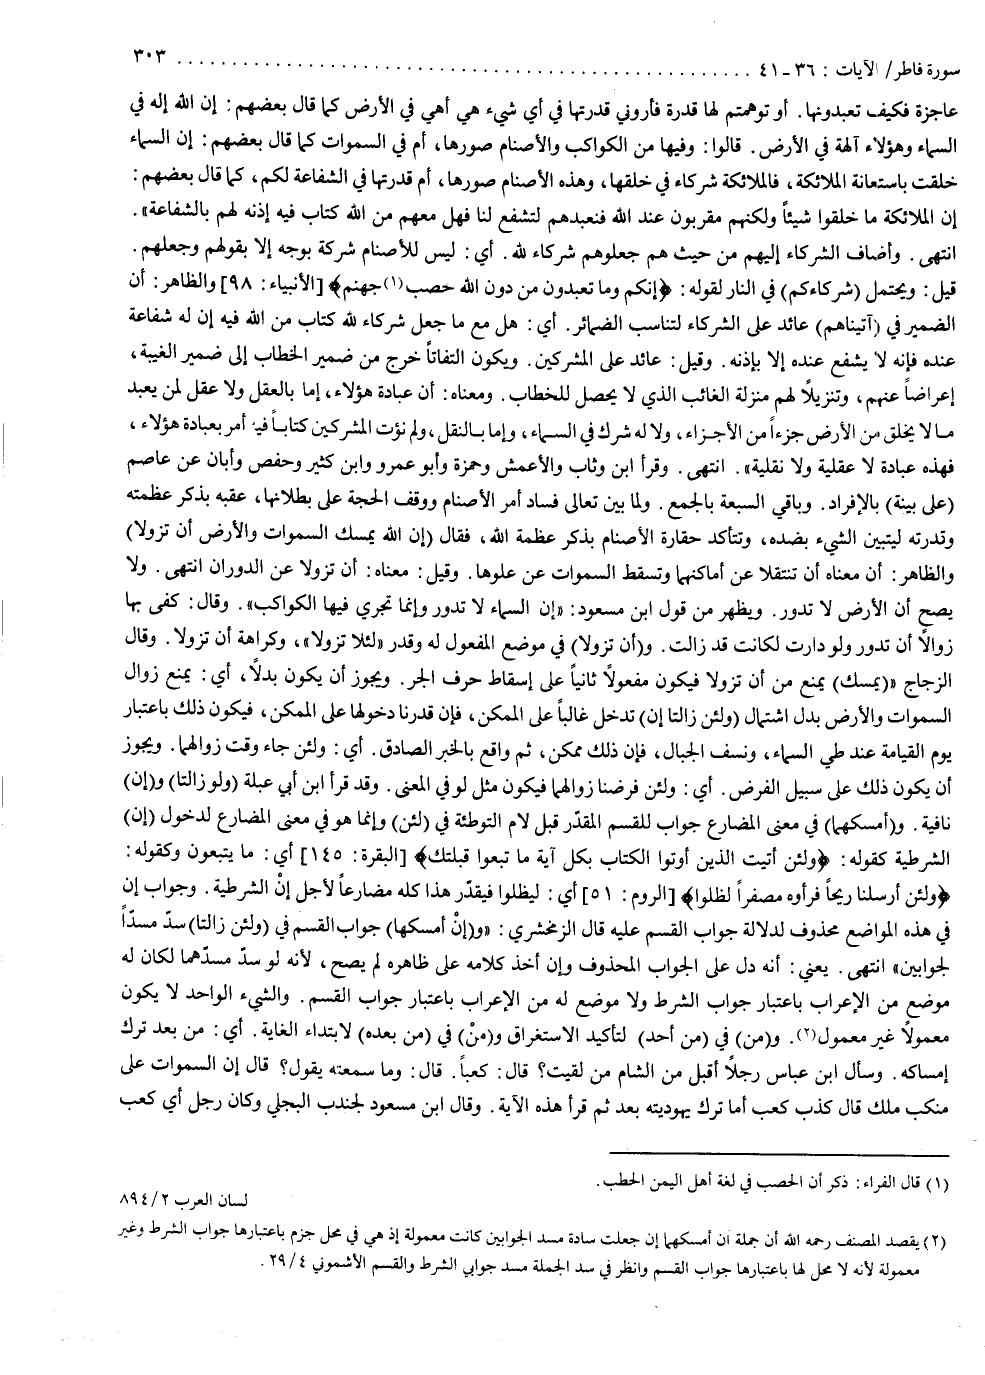 سورة فاطر/ الآيات : ٣٦ - ٤١ .......................................................... ٣٠٣
عاجزة فكيف تعبدونها. أو توهمتم لها قدرة فأروني قدرتها في أي شيء هي أهي في الأرض كما قال بعضهم: إن الله إله في
السماء وهؤلاء آلهة في الأرض. قالوا: وفيها من الكواكب والأصنام صورها، أم في السموات كما قال بعضهم: إن السماء
خلقت باستعانة الملائكة، فالملائكة شركاء في خلقها، وهذه الأصنام صورها، أم قدرتها في الشفاعة لكم، كما قال بعضهم:
إن الملائكة ما خلقوا شيئاً ولكنهم مقربون عند الله فنعبدهم لتشفع لنا فهل معهم من الله كتاب فيه إذنه لهم بالشفاعة».
انتهى. وأضاف الشركاء إليهم من حيث هم جعلوهم شركاء لله. أي: ليس للأصنام شركة بوجه إلا بقولهم وجعلهم.
قيل: ويحتمل (شركاءكم) في النار لقوله: ﴿إنكم وما تعبدون من دون الله حصب(١)جهنم﴾ [الأنبياء: ٩٨] والظاهر: أن
الضمير في (آتيناهم) عائد على الشركاء لتناسب الضمائر. أي: هل مع ما جعل شركاء لله كتاب من الله فيه إن له شفاعة
عنده فإنه لا يشفع عنده إلا بإذنه. وقيل: عائد على المشركين. ويكون التفاتاً خرج من ضمير الخطاب إلى ضمير الغيبة،
إعراضاً عنهم، وتنزيلاً لهم منزلة الغائب الذي لا يحصل للخطاب. ومعناه: أن عبادة هؤلاء، إما بالعقل ولا عقل لمن يعبد
ما لا يخلق من الأرض جزءاً من الأجزاء، ولا له شرك في السماء، وإما بالنقل، ولم نؤت المشركين كتاباً فيه أمر بعبادة هؤلاء،
فهذه عبادة لا عقلية ولا نقلية». انتهى. وقرأ ابن وثاب والأعمش وحمزة وأبو عمرو وابن كثير وحفص وأبان عن عاصم
(على بينة) بالإفراد. وباقي السبعة بالجمع. ولما بين تعالى فساد أمر الأصنام ووقف الحجة على بطلانها، عقبه بذكر عظمته
وقدرته ليتبين الشيء بضده، وتتأكد حقارة الأصنام بذكر عظمة الله، فقال (إن الله يمسك السموات والأرض أن تزولا)
والظاهر: أن معناه أن تنتقلا عن أماكنهما وتسقط السموات عن علوها. وقيل: معناه: أن تزولا عن الدوران انتهى. ولا
يصح أن الأرض لا تدور. ويظهر من قول ابن مسعود: «إن السماء لا تدور وإنما تجري فيها الكواكب». وقال: كفى بها
زوالاً أن تدور ولو دارت لكانت قد زالت. و(أن تزولا) في موضع المفعول له وقدر «لئلا تزولا»، وكراهة أن تزولا. وقال
الزجاج «(يمسك) يمنع من أن تزولا فيكون مفعولاً ثانياً على إسقاط حرف الجر. ويجوز أن يكون بدلاً، أي: يمنع زوال
السموات والأرض بدل اشتمال (ولئن زالتا إن) تدخل غالباً على الممكن، فإن قدرنا دخولها على الممكن، فيكون ذلك باعتبار
يوم القيامة عند طي السماء، ونسف الجبال، فإن ذلك ممكن، ثم واقع بالخبر الصادق. أي: ولئن جاء وقت زوالهما. ويجوز
أن يكون ذلك على سبيل الفرض. أي: ولئن فرضنا زوالهما فيكون مثل لو في المعنى. وقد قرأ ابن أبي عبلة (ولو زالتا) و(إن)
نافية. و(أمسكهما) في معنى المضارع جواب للقسم المقدّر قبل لام التوطئة في (لئن) وإنما هو في معنى المضارع لدخول (إن)
الشرطية كقوله: ﴿ولئن أتيت الذين أوتوا الكتاب بكل آية ما تبعوا قبلتك﴾ [البقرة: ١٤٥] أي: ما يتبعون وكقوله:
﴿ولئن أرسلنا ريحاً فرأوه مصفراً لظلوا﴾ [الروم: ٥١] أي: ليظلوا فيقدّر هذا كله مضارعاً لأجل إنْ الشرطية. وجواب إن
في هذه المواضع محذوف لدلالة جواب القسم عليه قال الزمخشري: «و(إنْ أمسكها) جواب القسم في (ولئن زالتا) سدّ مسدّاً
لجوابين» انتهى. يعني: أنه دل على الجواب المحذوف وإن أخذ كلامه على ظاهره لم يصح، لأنه لو سدّ مسدّهما لكان له
موضع من الإعراب باعتبار جواب الشرط ولا موضع له من الإعراب باعتبار جواب القسم. والشيء الواحد لا يكون
معمولاً غير معمول(٢). و(من) في (من أحد) لتأكيد الاستغراق و(منْ) في (من بعده) لابتداء الغاية. أي: من بعد ترك
إمساكه. وسأل ابن عباس رجلاً أقبل من الشام من لقيت؟ قال: كعباً. قال: وما سمعته يقول؟ قال إن السموات على
منكب ملك قال كذب كعب أما ترك يهوديته بعد ثم قرأ هذه الآية. وقال ابن مسعود لجندب البجلي وكان رجل أي كعب
(١) قال الفراء: ذكر أن الحصب في لغة أهل اليمن الحطب.
لسان العرب ٢/ ٨٩٤
(٢) يقصد المصنف رحمه الله أن جملة ان أمسكهما إن جعلت سادة مسد الجوابين كانت معمولة إذ هي في محل جزم باعتبارها جواب الشرط وغير
معمولة لأنه لا محل لها باعتبارها جواب القسم وانظر في سد الجملة مسد جوابي الشرط والقسم الأشموني ٤/ ٢٩.